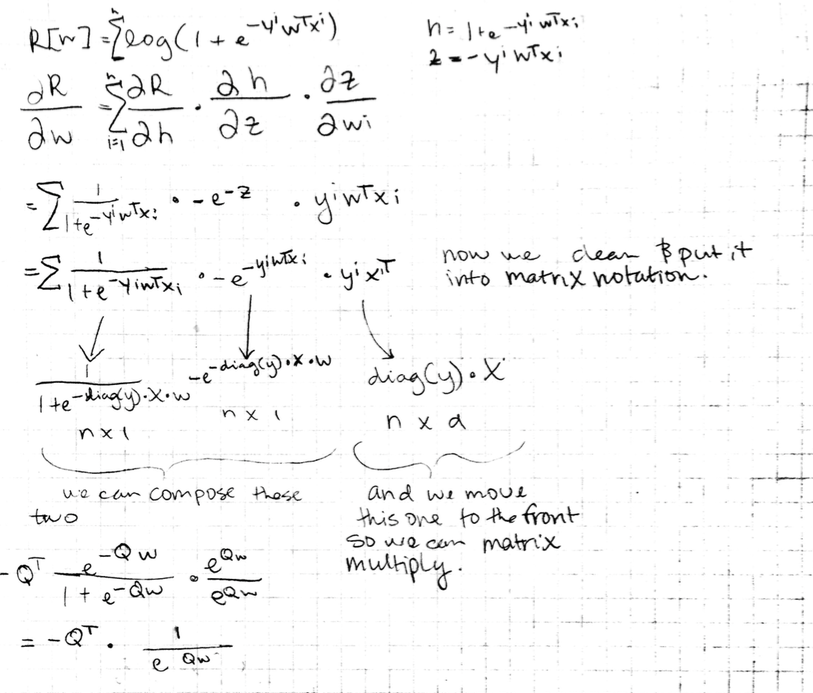 R[w] = Σⁿ log(1 + e^{-yⁱwᵀxⁱ})
h = 1+e^{-yⁱwᵀxᵢ}
z = -yⁱwᵀxᵢ
∂R/∂w = Σⁿᵢ₌₁ ∂R/∂h · ∂h/∂z · ∂z/∂wi
= Σ 1/(1+e^{-yⁱwᵀxᵢ}) · -e^{-z} · yⁱwᵀxᵢ
= Σ 1/(1+e^{-yⁱwᵀxᵢ}) · -e^{-yⁱwᵀxᵢ} · yⁱxⁱᵀ
now we clean & put it
into matrix notation.
1/(1+e^{-diag(y)·X·w})
n x 1
-e^{-diag(y)·X·w}
n x 1
diag(y)·X
n x d
we can compose these
two
and we move
this one to the front
so we can matrix
multiply.
-Qᵀ e^{-Qw}/(1 + e^{-Qw}) · e^{Qw}/e^{Qw}
= -Qᵀ · 1/e^{Qw}